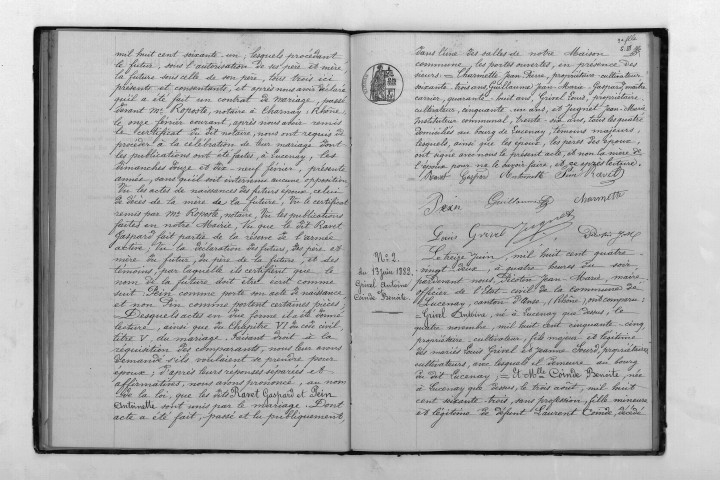 mil huit cent soixante-un; lesquels procédant
le futur, sous l'autorisation de ses père et mère
la future sous celle de son père, tous trois ici
présents et consentants, et après nous avoir déclaré
qu'il a été fait un contrat de mariage, passé
devant Mr Roposte, notaire à Charnay (Rhône)
le onze février courant, après nous avoir remis
le certificat du dit notaire, nous ont requis de
procéder à la célébration de leur mariage dont
les publications ont été faites, à Lucenay, les
dimanches douze et dix-neuf février, présente
année, sans qu'il soit intervenu aucune opposition
Vu les actes de naissances des futurs époux, celui
de décès de la mère de la future, Vu le certificat
remis par Mr Roposte, notaire, Vu les publications
faites en notre Mairie, Vu que le dit Ravet
Gaspard fait partie de la réserve de l'armée
active; Vu la déclaration des futurs, des père et
mère du futur, du père de la future, et des
témoins, par laquelle ils certifient que le
nom de la future doit être écrit comme
suit: Pein comme porte son acte de naissance
et non Pin comme portent certaines pièces;
Desquels actes en due forme il a été donné
lecture, ainsi que du Chapitre VI du code civil,
titre V. du mariage. Faisant droit à la
réquisition des comparants, nous leur avons
demandé s'ils voulaient se prendre pour
époux; d'après leurs réponses séparées et
affirmatives, nous avons prononcé, au nom
De la loi, que les dits Ravet Gaspard et Pein
Antoinette sont unis par le mariage. Dont
acte a été fait, passé et lu publiquement,
dans l'une des salles de notre Maison
commune, les portes ouvertes, en présence des
sieurs: Charmette Jean Pierre, propriétaire-cultivateur,
soixante-trois ans, Guillerme Jean-Marie-Gaspard, maître
carrier, quarante-huit ans, Grivel Louis, propriétaire
cultivateur, cinquante-un ans, et Jugnet Jean-Marie
instituteur communal, trente-six ans, tous les quatre
domiciliés au bourg de Lucenay, témoins majeurs,
lesquels, ainsi que les époux, les pères des époux,
ont signé avec nous le présent acte, et non la mère de
l'époux pour ne le savoir faire, et ce après lecture.
Ravet Gaspard Antoinette Pein Ravet
Pein Guillerme Charmette
Louis Grivel Jugnet
No 2
du 13 juin 1882
Grivel Antoine
et
Coinde Benoite
Le treize juin, mil huit cent quatre
vingt deux, à quatre heures du soir
pardevant nous, Jean-Marie, maire
officier de l'état civil de la commune de
Lucenay, canton d'Anse, (Rhône), ont comparu:
Grivel Antoine, né à Lucenay que dessus, le
quatre novembre, mil huit cent cinquante-cinq,
propriétaire, cultivateur, fils majeur et légitime
des mariés Louis Grivel et Jeanne propriétaires
cultivateurs, avec lesquels il demeure, au bourg
du dit Lucenay; Et Mlle Coinde Benoite, née
à Lucenay que dessus, le trois août, mil huit
cent soixante-trois, sans profession, fille mineure
et légitime de défunt Laurent Coinde, décédé